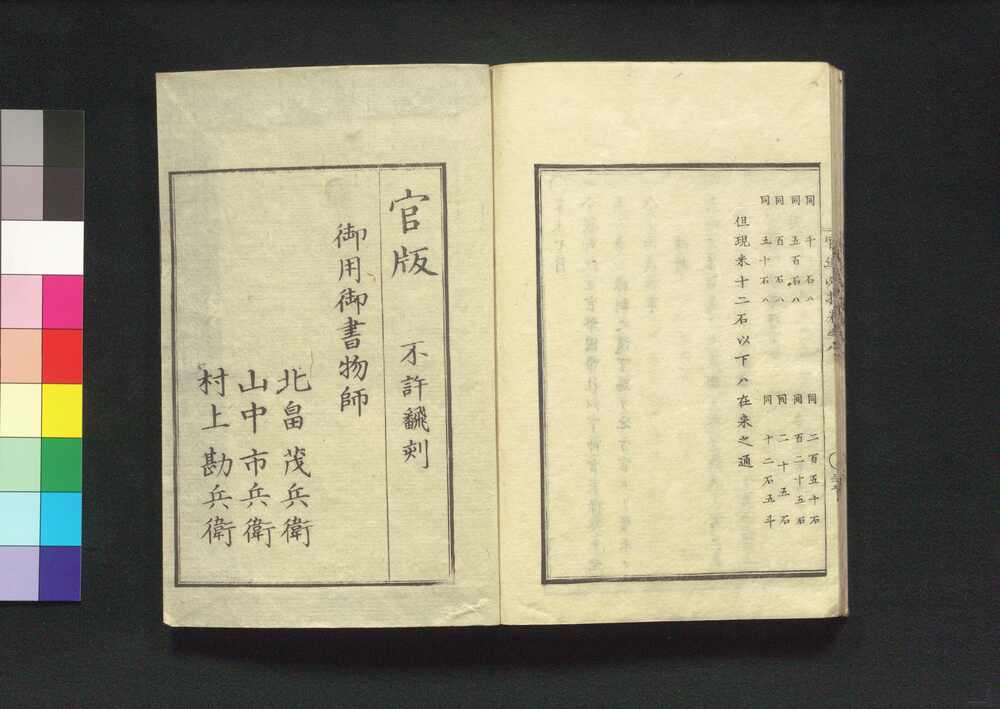 同　千石ハ　同　二百五十石
同　五百石ハ　同　百二十五石
同　百石ハ　同　二十五石
同　五十石ハ　同　十二石五斗
但現米十二石以下ハ在来之通
官版　不許飜刻
御用御書物師
北畠茂兵衛
山中市兵衛
村上勘兵衛